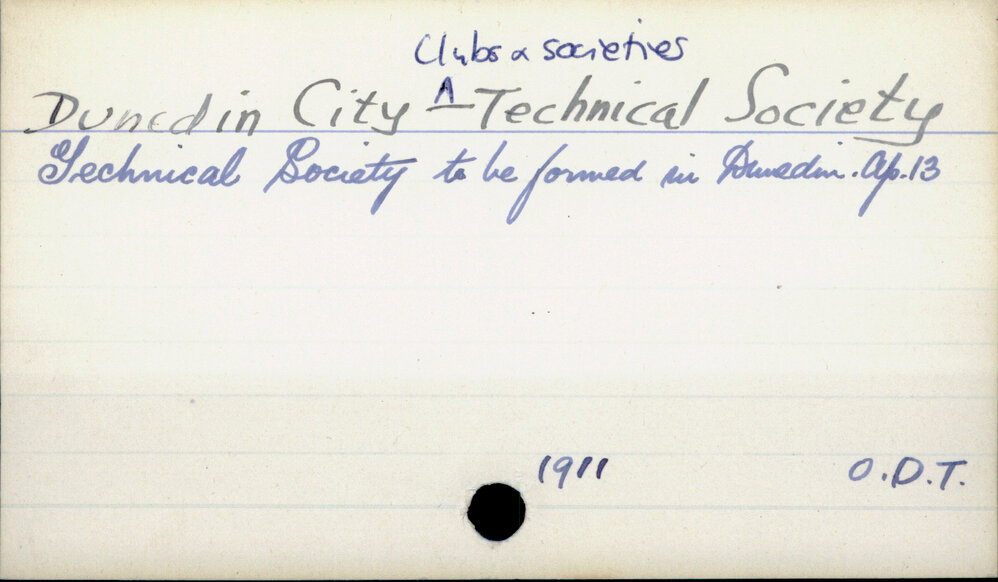 Clubs & societies
Dunedin City ^ - Technical Society
Technical Society to be formed in Dunedin. Ap. 13
1911 O.D.T.